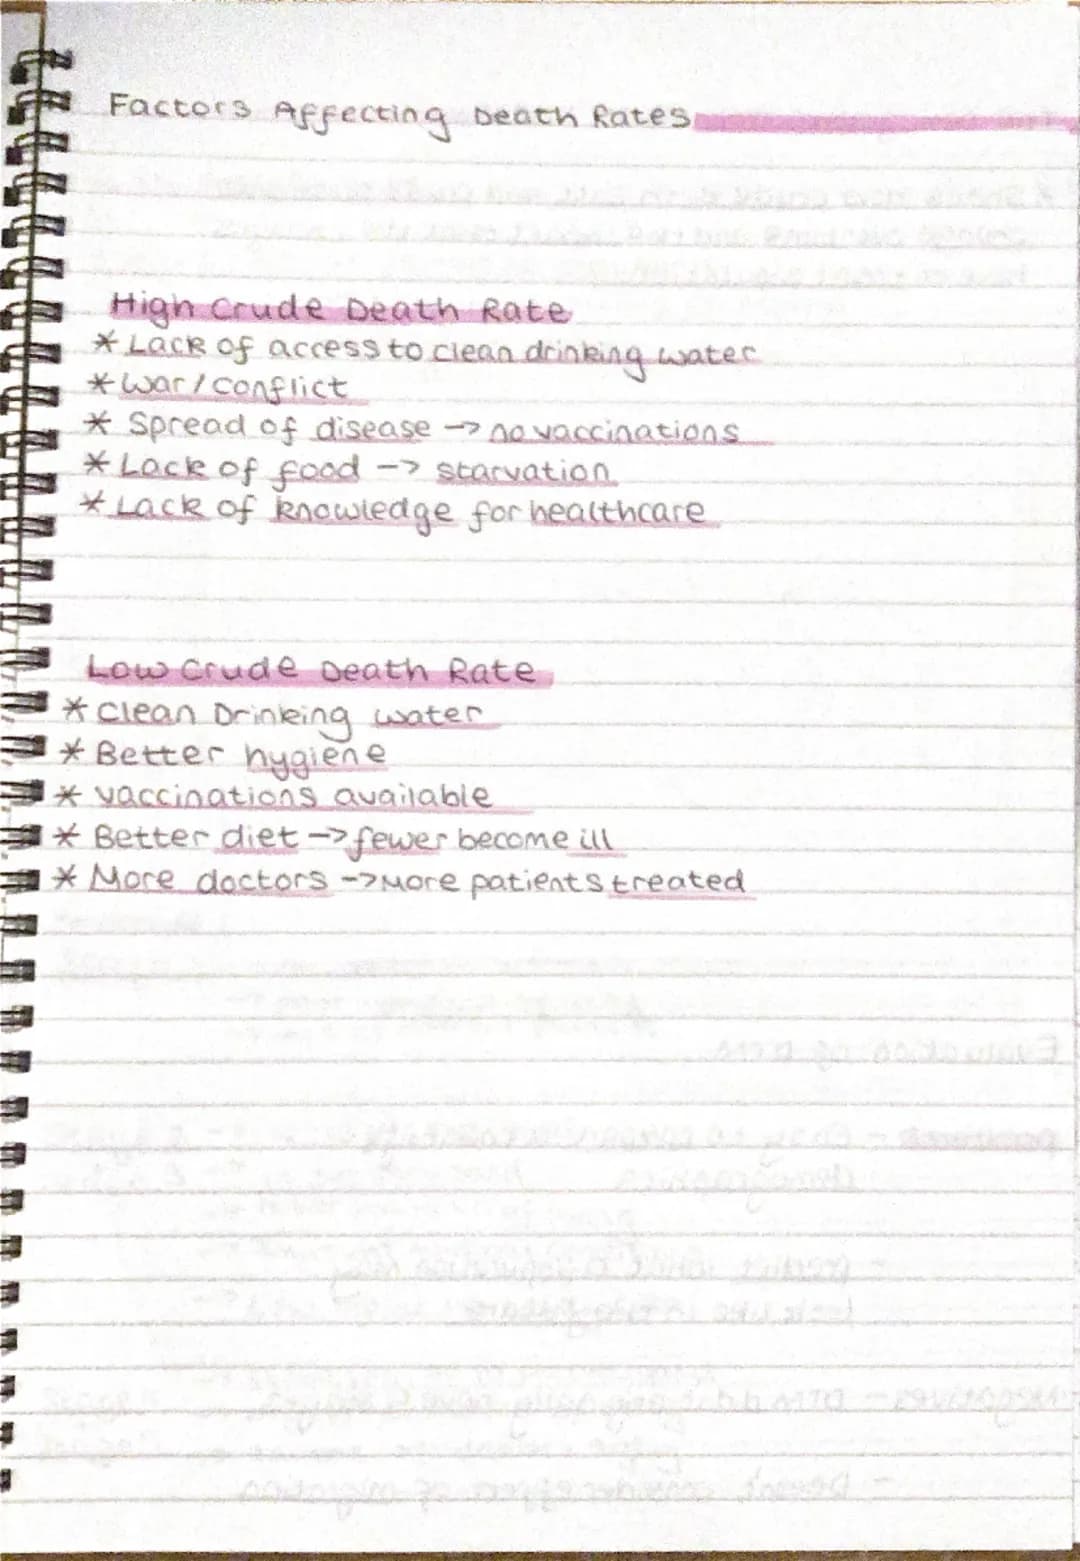 Factors Affecting Death Rates
High Crude Death Rate
* Lack of access to clean drinking water
* War/conflict
* Spread of disease -> no vaccinations
* Lack of food -> starvation
* Lack of knowledge for healthcare
Low Crude Death Rate
* Clean Drinking water
* Better hygiene
* vaccinations available
* Better diet -> fewer become ill
* More doctors -> More patients treated